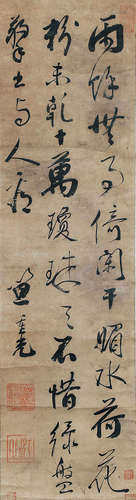 雨餘無事倚闌干媚水荷花
粉未乾十萬瓊珠天不惜綠盤
擎出与人看 笪重光